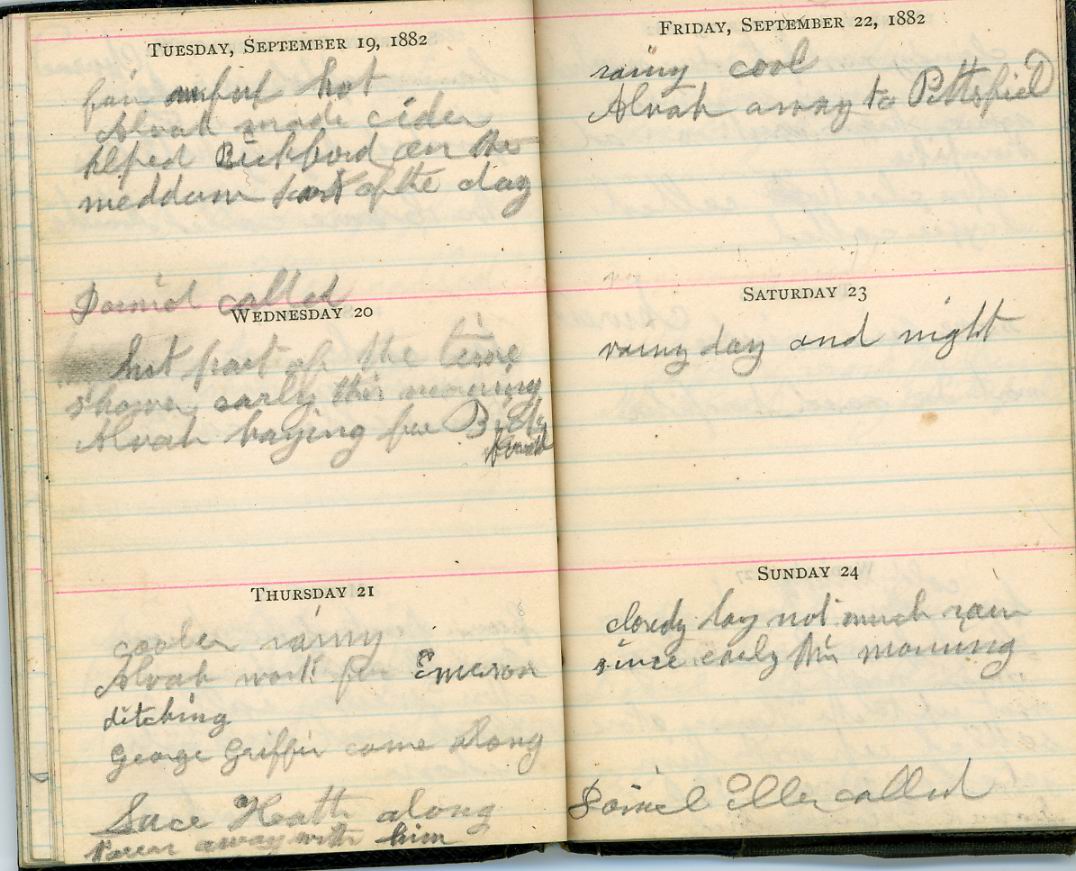 TUESDAY, SEPTEMBER 19, 1882
fair hot
Alvah made cider
helped Bickford on the
meddam part of the day
Daniel called
WEDNESDAY 20
hot part of the time
shower early this morning
Alvah haying for Bick
ford
THURSDAY 21
cooler rainy
Alvah work for Emerson
ditching
George Griffin come along
Heath along
away with him
FRIDAY, SEPTEMBER 22, 1882
rainy cool
Alvah away to Pittsfield
SATURDAY 23
rainy day and night
SUNDAY 24
cloudy day not much rain
since early this morning
Daniel Eller called